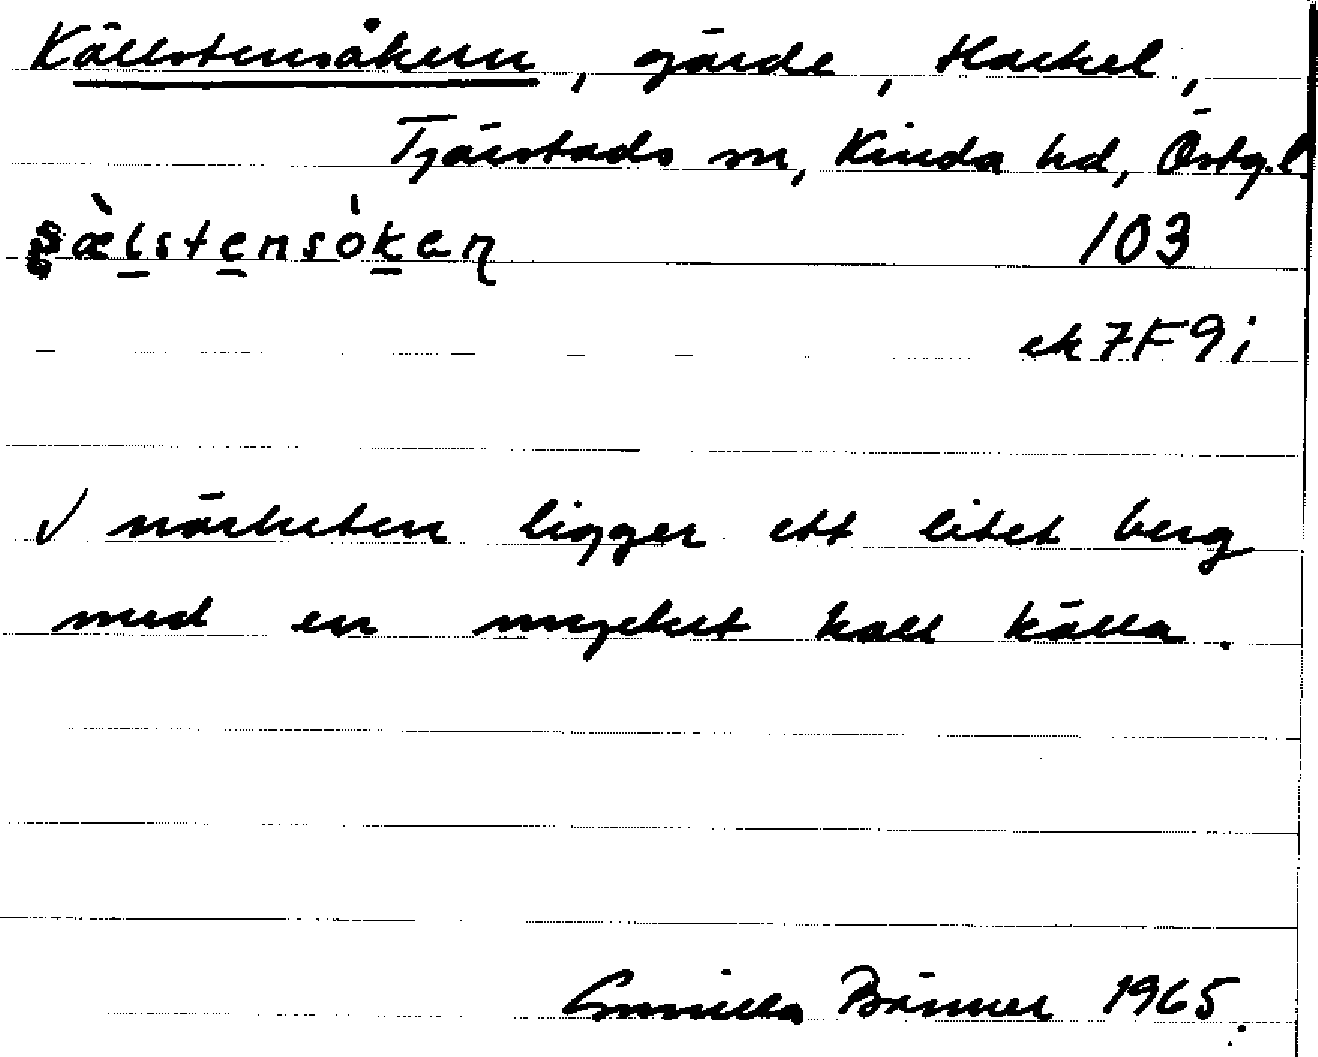 Källstensåkern, gärde, Hackel,
Tjärstads sn, Kinda hd, Östg.l.
§æ̀lstensὸkaɳ 103
ek 7F9i
I närheten ligger ett litet berg
med en mycket kall källa.
Gunilla Bänner 1965.